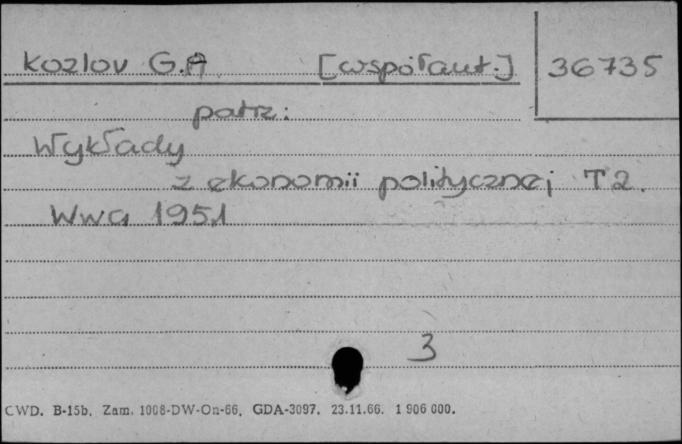 Kozlov G.A. [współaut.] 36735
patrz:
Wykłady
z ekonomii politycznej T2.
Wwa 1951
3
CWD. B-15b. Zam. 1008-DW-On-66. GDA-3097. 23.11.66. 1 906 000.